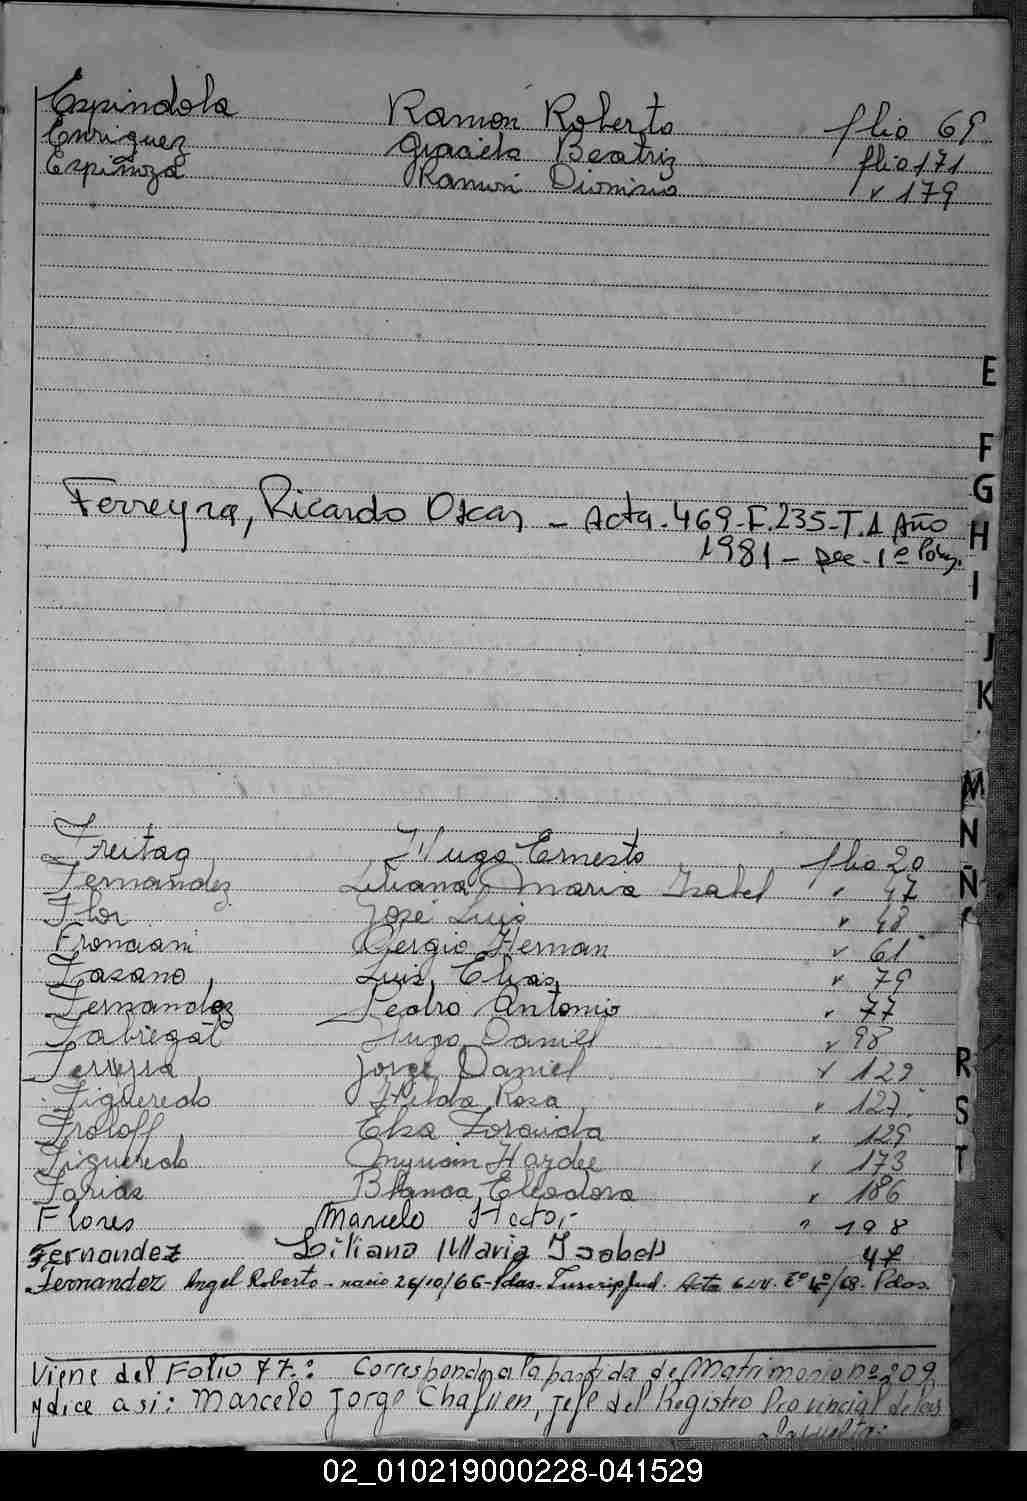 Espindola Ramón Roberto flio 69
Enriquez Graciela Beatriz flio 171
Espinoza Ramón Dionisio " 179
E
F
G
Ferreyra, Ricardo Oscar - Acta. 469-F.235-T.1 Año
H
1981 - Sec. 1ª Pdas.
I
J
K
M
N
Freitag Hugo Ernesto flio 20
Fernandez Liliana Maria Isabel " 47
Ñ
Flor José Luis " 48
Fronciani Sergio Hernan " 61
Fasano Luis Elias " 79
Fernandez Pedro Antonio " 77
Fabregat Hugo Daniel " 98
Ferreyra Jorge Daniel " 129
R
Figueredo Hilda Rosa " 127
S
Froloff Elsa Zoraida " 129
Figueredo Myriam Haydee " 173
T
Farias Blanca Eleodora " 186
Flores Marcelo Hector " 198
Fernandez Liliana Maria Isabel 47
Fernandez Angel Roberto - nacio 26/10/66 - Pdas - Inscrip Jud. Acta Tº 4º/68. Pdas.
Viene del Folio 77.: Corresponde a la partida de Matrimonio nº 209
y dice asi: Marcelo Jorge Chaf, Jefe del Registro Provincial de las
la vuelta:
02_010219000228-041529